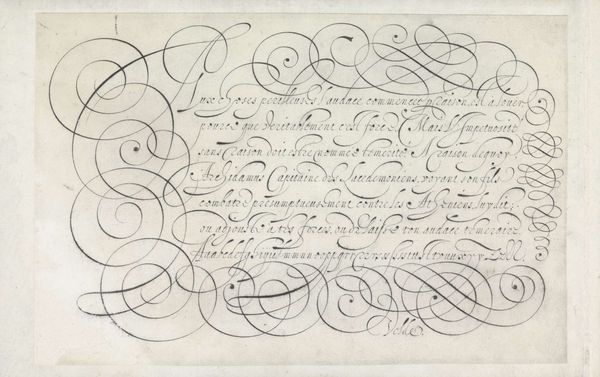 Aux choses perilleuses l'audace commencee par raison, est a louer
pource que veritablement c'est force. Mais l'Impetuosité
sans raison doit estre nommee temerité. A raison dequoy
Archidamus Capitaine des Lacedemoniens, voyant son fils
combatre presumptueusement contre les Atheniens, luy dit;
ou adjouste a tes forces, ou delaisse ton audace temeraire.
Velde.